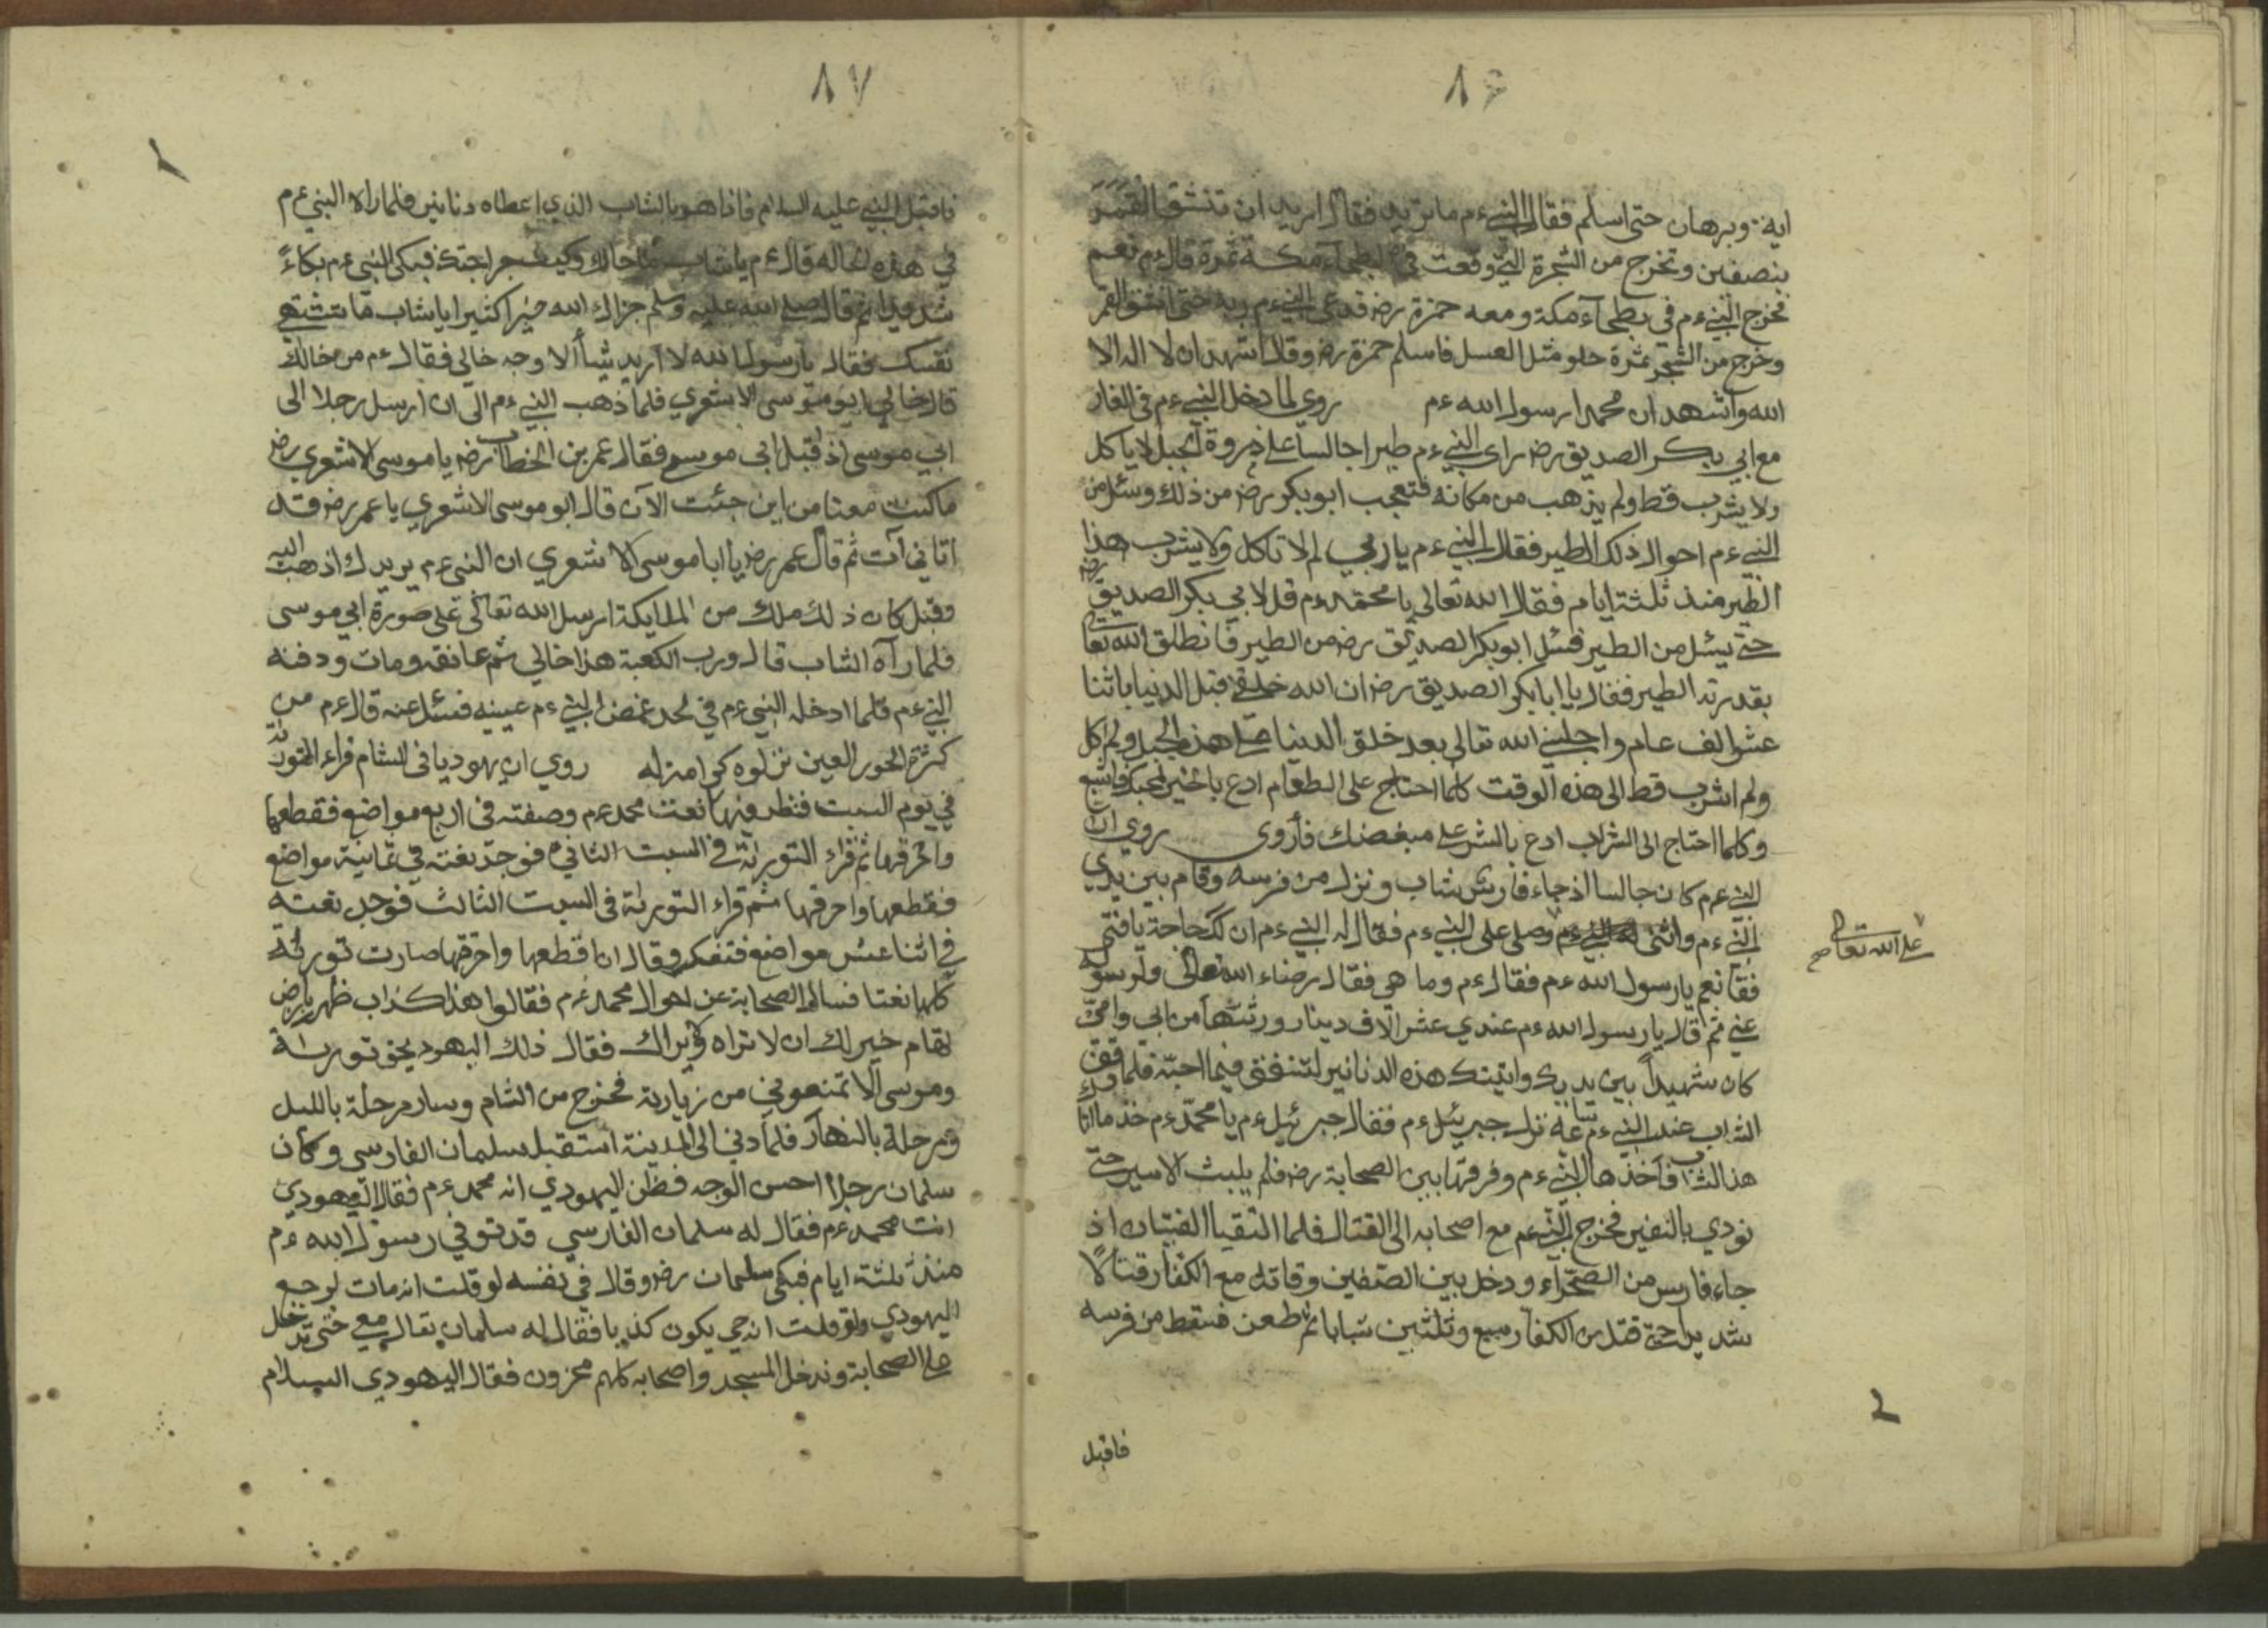 ٨٦
اية وبرهان حتى اسلم فقال النبي ءم ما تريد فقال اريد ان تنشق القمر
بنصفين وتخرج من الشجرة التي وقعت في بطحاء مكة ثمرة قال ءم نعم
فخرج النبي ءم في بطحاء مكة ومعه حمزة رض فدعى النبي ءم ربه حتى انشق القمر
وخرج من الشجر ثمرة حلو مثل العسل فاسلم حمزة رض وقال اشهد ان لا اله الا
الله واشهد ان محمدا رسول الله ءم روي لما دخل النبي ءم في الغار
مع ابي بكر الصديق رض راى النبي ءم طيرا جالسا على ذروة الجبل لا ياكل
ولا يشرب قط ولم يذهب من مكانه فتعجب ابو بكر رض من ذلك وسئل من
النبي ءم احوال ذلك الطير فقال النبي ءم يا ربي لم لا تاكل ولا يشرب هذا
الطير منذ ثلثة ايام فقال الله تعالى يا محمد ءم قل لابي بكر الصديق رض
حتى يسئل من الطير فسئل ابو بكر الصديق رض من الطير فانطلق الله تعالى
بقدرته الطير فقال يا ابا بكر الصديق رض ان الله خلقني قبل الدنيا باثنا
عشر الف عام واجلسني الله تعالى بعد خلق الدنيا على هذه الجبل ولم اكل
ولم اشرب قط الى هذه الوقت كلما احتاج على الطعام ادع بالخير لمحبك فاشبع
وكلما احتاج الى الشراب ادع بالشر على مبغضك فأروى روي ان
النبي ءم كان جالسا اذ جاء فارس شاب ونزل من فرسه وقام بين يدي
النبي ءم واثنى وصلى على النبي ءم فقال له النبي ءم ان لك حاجة يا فتى
على الله تعالى صح
فقا نعم يا رسول الله ءم فقال ءم وما هي فقال رضاء الله تعالى ورسوله
عني ثم قال يا رسول الله ءم عندي عشر الاف دينار ورثتها من ابي وامي
كان شهيدا بين يديك واتيتك هذه الدنانير لتنفق فيما احبه فلما
الشاب عند النبي ءم ساعة نزل جبريئل ءم فقال جبرئيل ءم يا محمد ءم خذ ما اتا
هذا الشاب فاخذها النبي ءم وفرقها بين الصحابة رض فلم يلبث الا سير حتى
نودي بالنفير فخرج النبي ءم مع اصحابه الى القتال فلما التقيا الفيتان اذ
جاء فارس من الصحراء ودخل بين الصفين وقاتل مع الكفار قتالا
شديدا حتى قتل من الكفار سبع وثلثين شبابا ثم طعن فسقط من فرسه
فاقبل
٨٧
فاقبل النبي عليه السلام فاذا هو بالشاب الذي اعطاه دنانير فلما راه النبي ءم
في هذه الحاله قال ءم يا شاب ما حالك وكيف جراحتك فبكى النبي ءم بكاء
شديدا ثم قال صلى الله عليه وسلم جزاك الله خيرا كثيرا يا شاب ما تشتهي
نفسك فقال يا رسول الله لا اريد شيأ الا وجه خالي فقال ءم من خالك
قال خالي ابو موسى الاشعري فلما ذهب النبي ءم الى ان ارسل رجلا الى
ابي موسى اذ قبل ابي موسى فقال عمر بن الخطاب رض يا موسى الاشعري رض
ما كنت معنا من اين جئت الآن قال ابو موسى الاشعري يا عمر رض قد
اتاني آت ثم قال عمر رض يا ابا موسى الاشعري ان النبي ءم يريدك اذهب اليه
وقيل كان ذلك ملك من الملايكة ارسل الله تعالى على صورة ابي موسى
فلما رآه الشاب قال ورب الكعبة هذا خالي ثم عانقه ومات ودفنه
النبي ءم فلما ادخله النبي ءم في لحد غمض النبي ءم عينيه فسئل عنه قال ءم من
كثرة الحور العين نزلوه كوامزله روي ان يهوديا في الشام قراء التورىة
في يوم السبت فنظر فيها نعت محمد ءم وصفته في اربع مواضع فقطعها
واحرقها ثم قراء التورىة في السبت الثاني فوجد نعته في ثمانية مواضع
فقطعها واحرقها ثم قراء التورىة في السبت الثالث فوجد نعته
في اثنا عشر مواضع فتفكر وقال ان قطعها واحرقها صارت تورىة
كلها نعتا فسال الصحابة عن احوال محمد ءم فقالوا هذا كذاب ظهر بارض
تهام خير لك ان لا تراه ولا يراك فقال ذلك اليهود بحق تورىة
وموسى الا تمنعوني من زيارته فخرج من الشام وسار مرحلة بالليل
ومرحلة بالنهار فلما دنى الى المدينة استقبل سليمان الفارسي وكان
سلمان رجلا احسن الوجه فظن اليهودي انه محمد ءم فقال اليهودي
انت محمد ءم فقال له سلمان الفارسي قد توفي رسول الله ءم
منذ ثلثة ايام فبكى سلمان رض وقال في نفسه لو قلت انه مات لرجع
اليهودي ولو قلت انه حي يكون كذبا فقال له سلمان تعال معي حتى تدخل
على الصحابة وندخل المسجد واصحابه كلهم محزون فقال اليهودي السلام